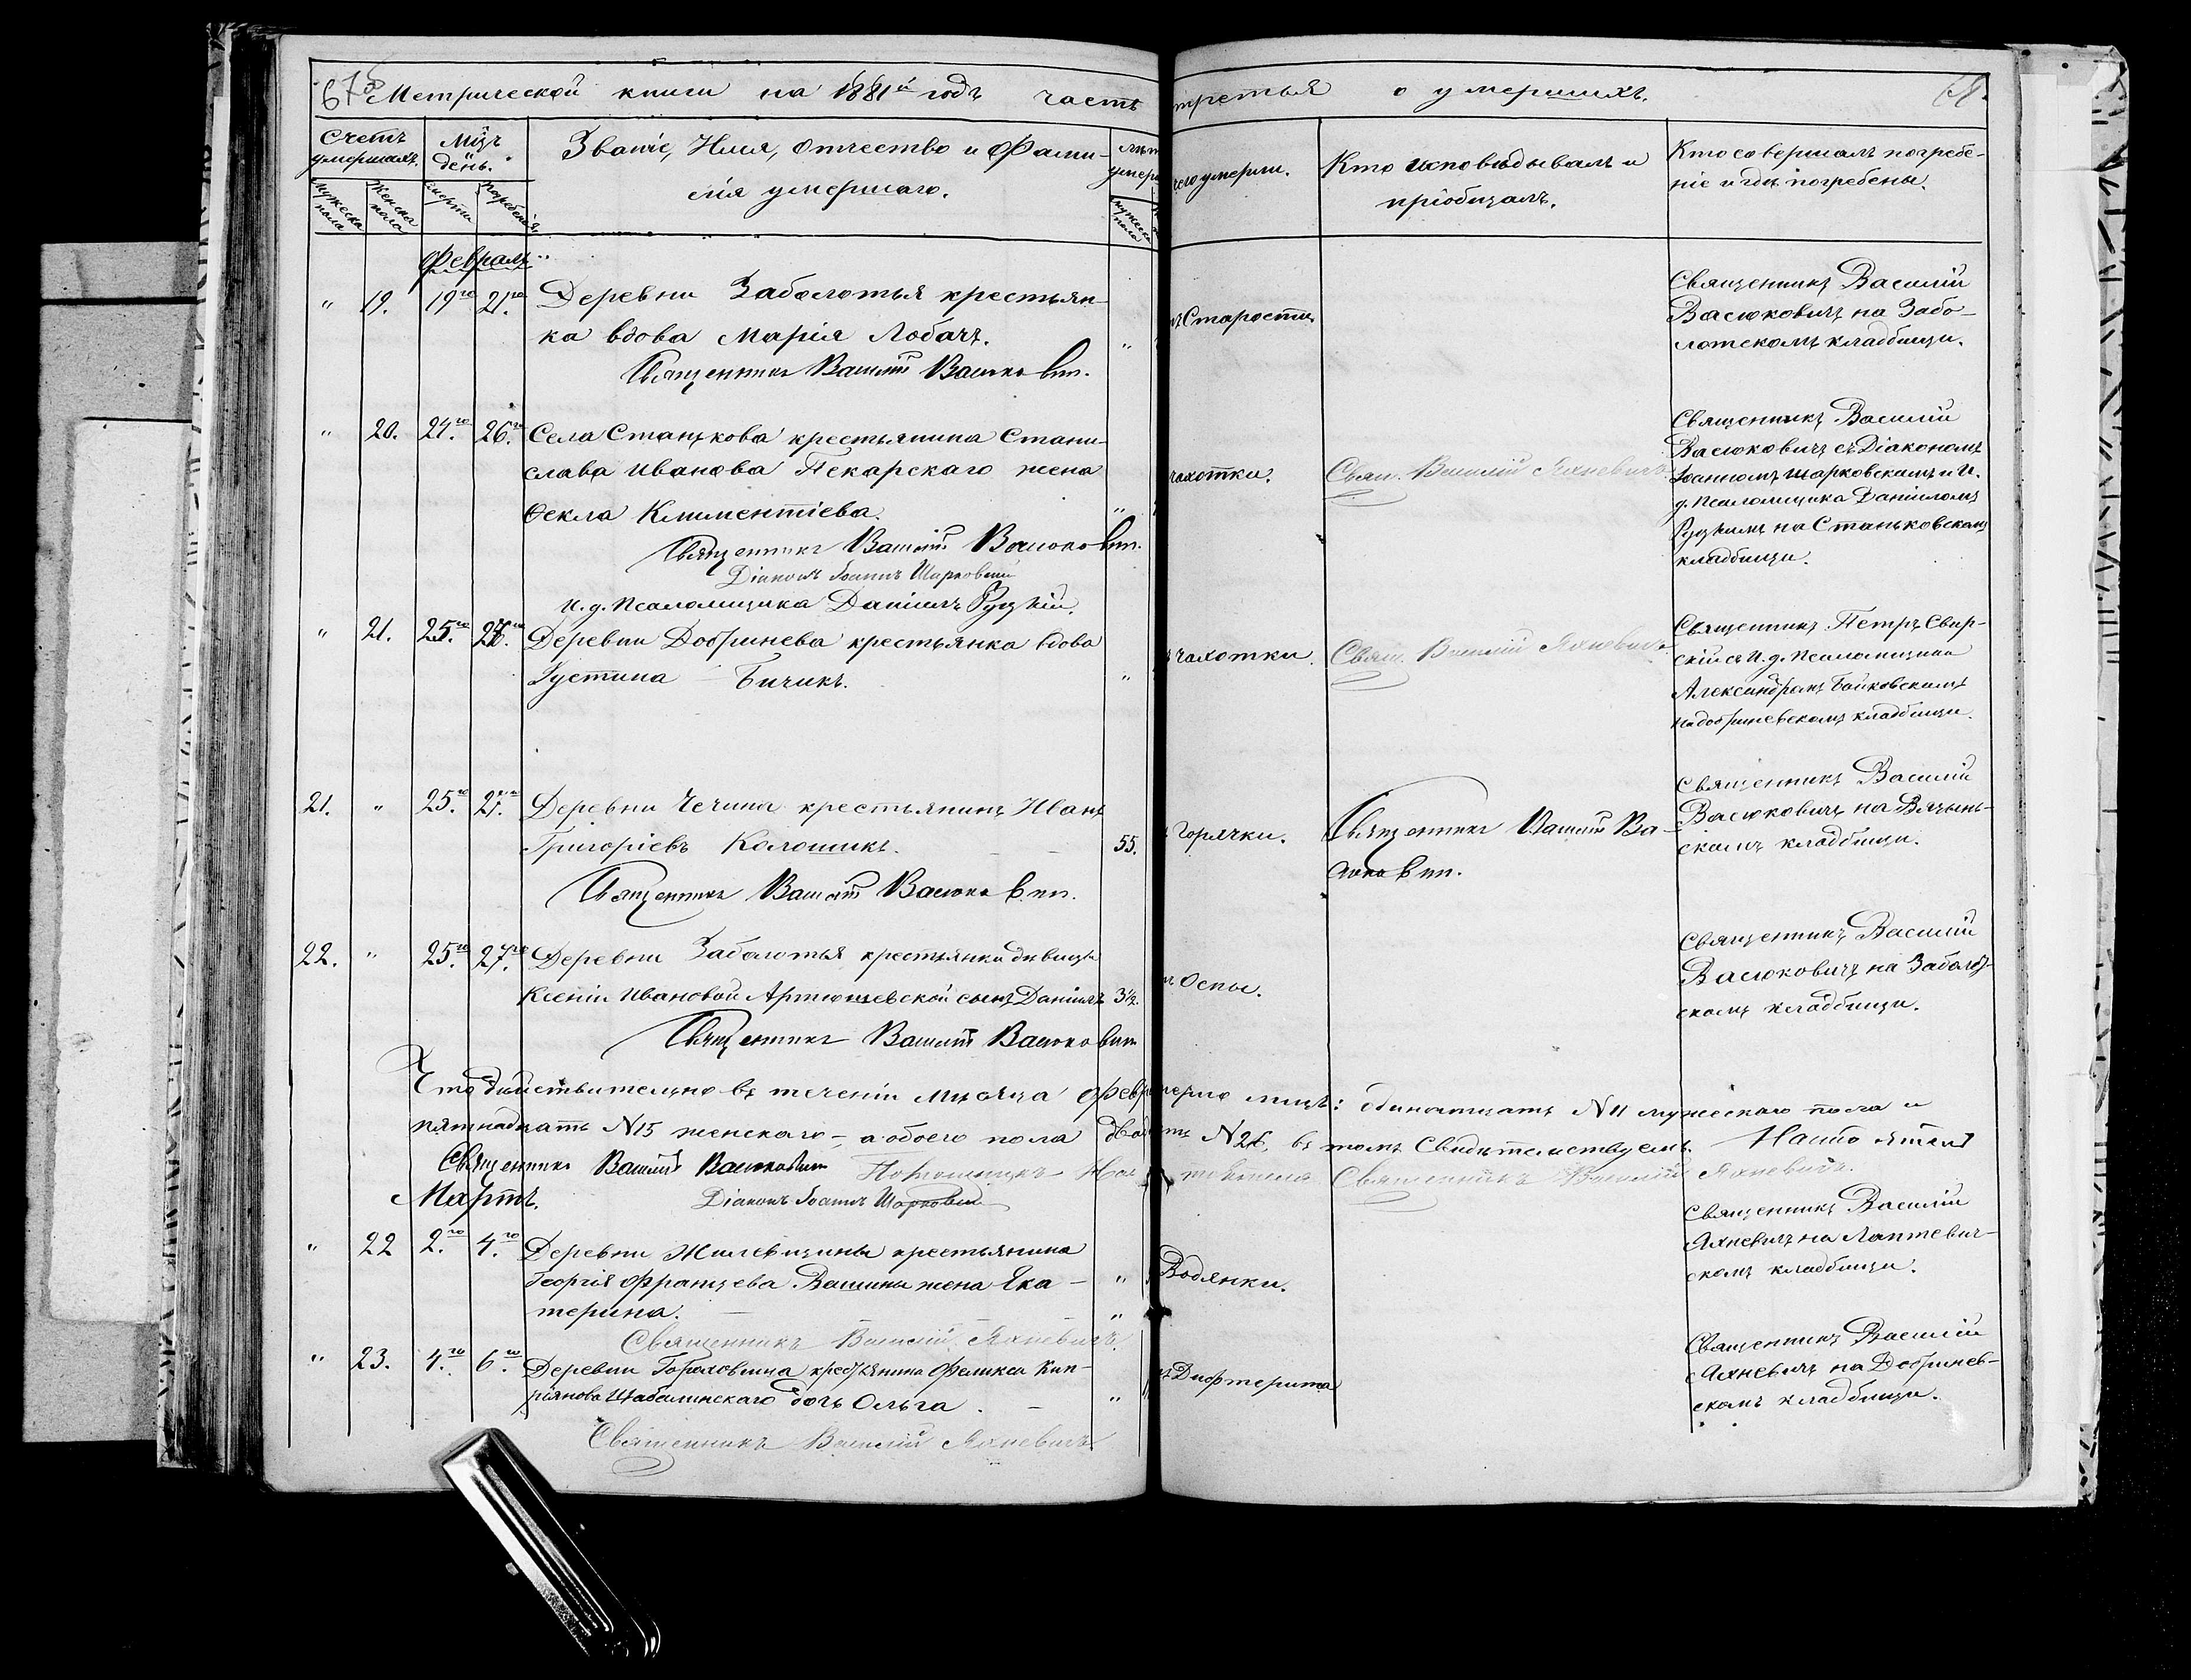 67 Метрической книги на 1881й годъ часть третья о умершихъ. 68.
Счетъ умершихъ.
Мѣцъ и день.
Званіе, Имя, Отчество и Фами-
лія умершаго.
Мужеска пола
Женска пола
смерти
погребенія
мужеска пола
чего умерли.
Кто исповѣдывалъ и
пріобщалъ.
Кто совершалъ погребе-
ніе и гдѣ погребены.
Февраль
" 19. 19го 21го Деревни Заболотья крестьян-
ка вдова Марія Лобачъ. "
Священникъ Василій Васюковичъ.
Старости
Священникъ Василій
Васюковичъ на Забо-
лотскомъ кладбищи.
" 20. 24.го 26.го Села Станькова крестьянина Стани-
слава Иванова Пекарскаго жена
Ѳекла Климентіева. "
Священникъ Василій Васюковичъ.
Діаконъ Іоаннъ Шарковскій
И. д. Псаломщика Даніилъ Руцкій.
чахотки.
Свящ. Василій Яхневичъ
Священникъ Василій
Васюковичъ съ Діакономъ
Іоанномъ Шарковскимъ и И.
д. Псаломщика Даніиломъ
Руцкимъ на Станьковскомъ
кладбищи.
" 21. 25.го Деревни Добринева крестьянка вдова
Густина Бичикъ. "
чахотки.
Свящ. Василій Яхневичъ
Священникъ Петръ Свир-
скій съ И. д. Псаломщика
Александромъ Байковскимъ
на добриневскомъ кладбищи.
21. " 25.го 27.го Деревни Чечина крестьянинъ Иванъ
Григоріевъ Колошикъ. 55.
Священникъ Василій Васюковичъ.
Горячки.
Священникъ Василій Ва-
сюковичъ.
Священникъ Василій
Васюковичъ на
скомъ кладбищи.
22. " 25.го 27.го Деревни Заболотья крестьянки дѣвицы
Ксеніи Ивановой Артюшевской сынъ Даніилъ 3½.
Священникъ Василій Васюковичъ
Оспы.
Священникъ Василій
Васюковичъ на Заболот-
скомъ кладбищи.
Что дѣйствительно въ теченіи мѣсяца лицъ: одинатцать N 11 мужескаго пола и
пятнадцать N 15 женскаго – а обоего пола N 26, въ томъ Свидѣтельствуемъ. Настоятель
Священникъ Василій Васюковичъ Помощникъ Священникъ Василій Яхневичъ.
Діаконъ Іоаннъ Шарковскій
Мартъ.
" 22 2.го 4.го Деревни Жилевщины крестьянина
Георгія Францева Вашины жена Ека- "
терина. "
Священникъ Василій Яхневичъ.
Водянки.
Священникъ Василій
Яхневичъ на Лаптевич-
скомъ кладбищи.
" 23. 4.го 6.го Деревни Гороховщина крестьянина Феликса Кип-
ріянова Щабелинскаго дочь Ольга. "
Священникъ Василій Яхневичъ
Дифтерита
Священникъ Василій
Яхневичъ на Добринев-
скомъ кладбищи.